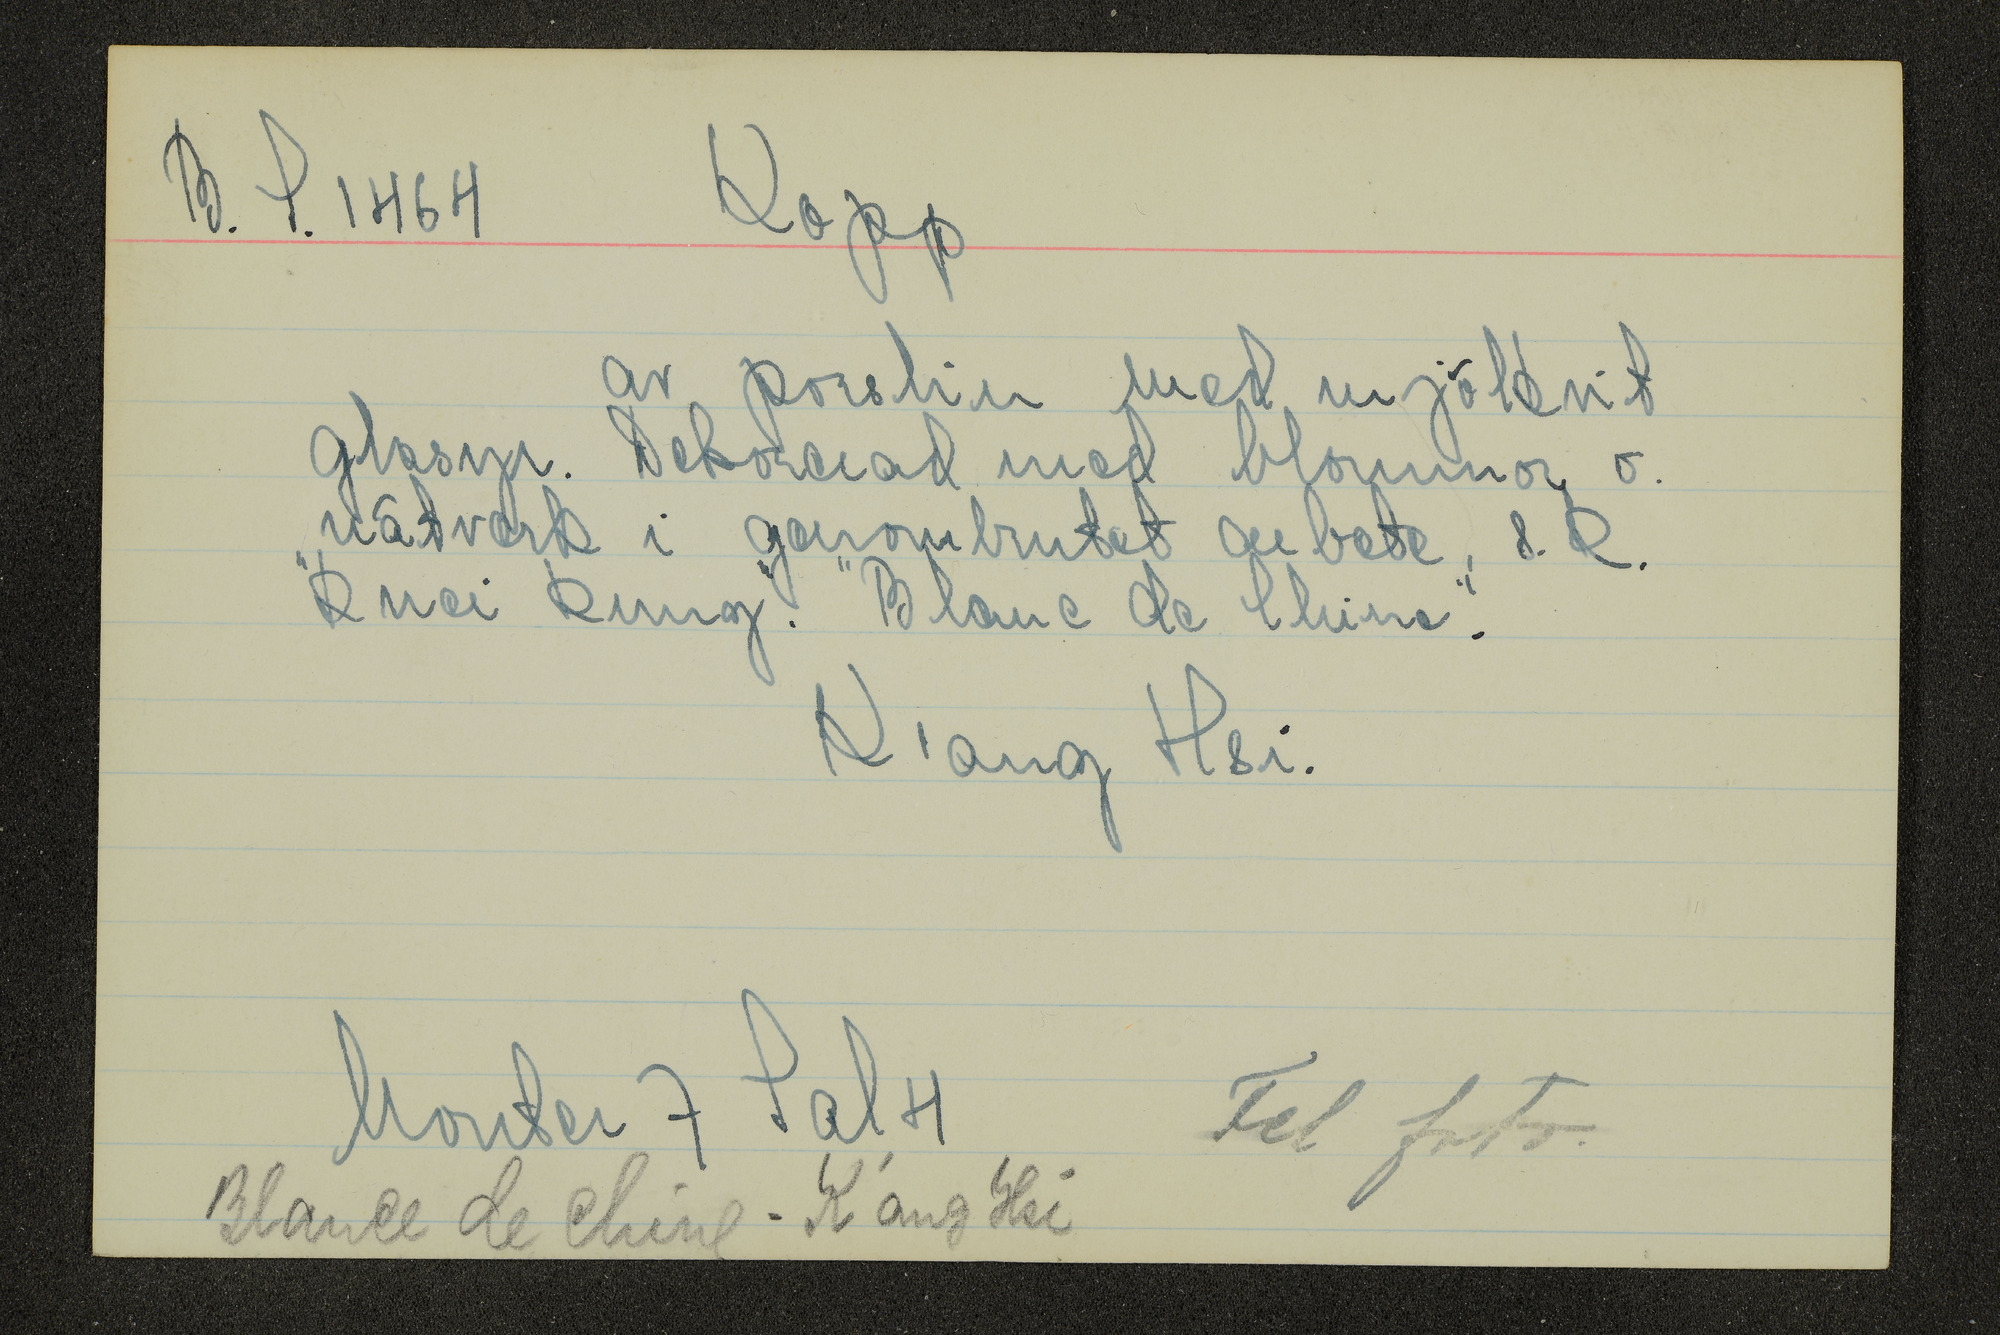 B. S. 1464 Kopp
av porslin med mjölkvit
glasyr. Dekorerad med blommor o.
nätverk i genombrutet arbete, s. k.
"Kuei Kung". "Blanc de Chine".
K'ang Hsi.
Monter 7 Sal 4
Fel foto.
Blance de chine - K'ang Hsi